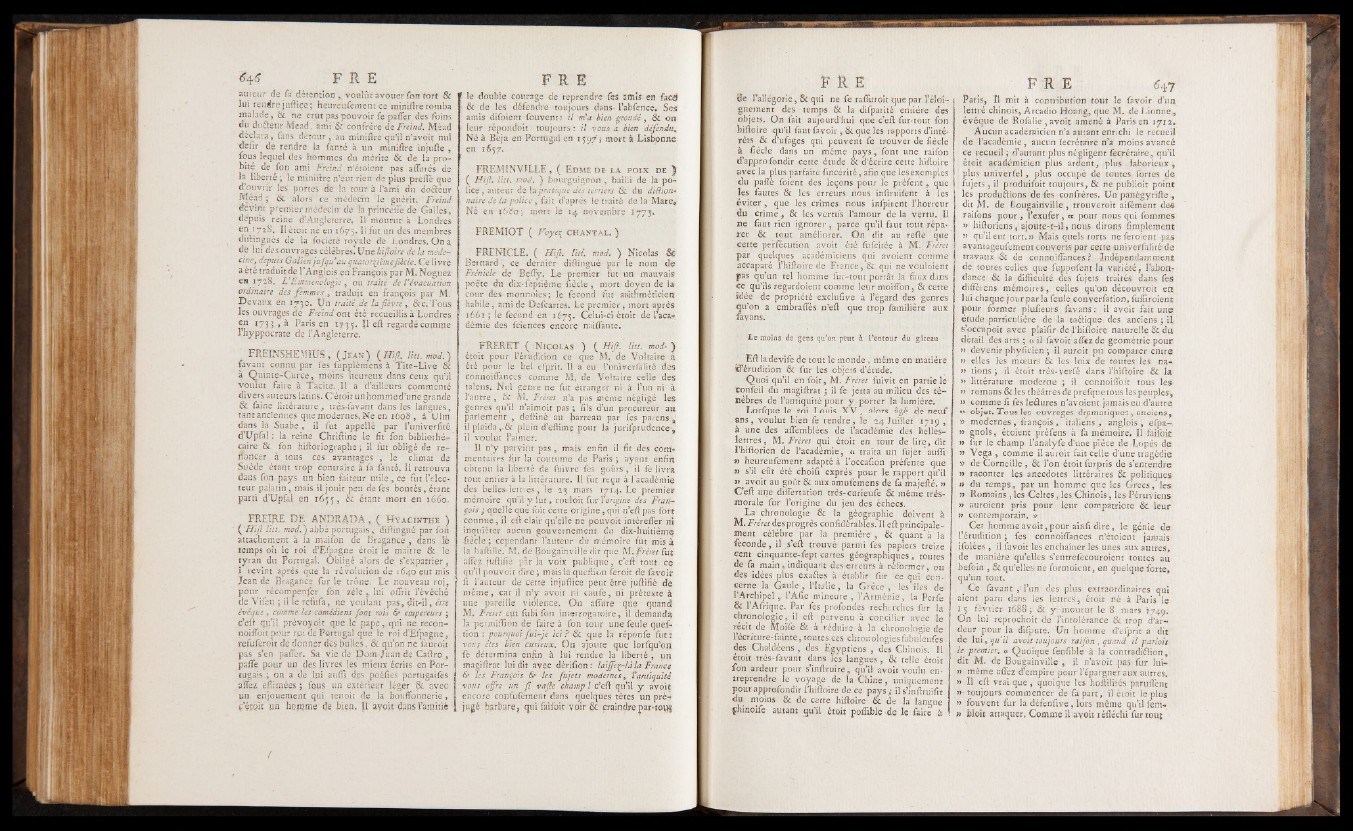 646 F R E
auteur de sa détention, voulût avouer son tort &
lui rendre justice; heureusement ce ministre tomba
malade, & ne crut pas pouvoir se passer des soins
du docteur Mead, ami & confrère de Freind. Mead
déclara, sans détour, au ministre qu'il n'avoit nul
desir de rendre la santé à un ministre injuste,
sous lequel des hommes du mérite & de la pro-
bité de son ami Freind n'étoient pas assurés de
la liberté; le ministre n'eut rien de plus pressé que
d'ouvrir les portes de la tour à l'ami du docteur
Mead; & alors ce médecin le guérit. Freind
devint premier médecin de la princesse de Galles,
depuis reine d'Angleterre. Il mourut à Londres
en 1728. Il étoit né en 1675. Il fut un des membres
distingués de la société royale de Londres. On a
de lui des ouvrages célèbres. Une histoire de la méde-
cine, depuis Galien jusqu'au quatorzième siècle. Ce livre
a été traduit de l'Anglois en François par M. Noguez
en 1728. L'Emmenologie, ou traité de l'évacuation
ordinaire des femmes, traduit en françois par M.
Devaux en 1730. Un traité de la fièvre, &c. Tous
les ouvrages de Freind ont été recueillis à Londres
en 1733, à Paris en 1735. Il est regardé comme
l'hyppocrate de l'Angleterre.
FREINSHEMIUS, (JEAN) (Hist. litt. mod.)
savant connu par ses supplémens à Tite-Live &
à Quinte-Curce, moins heureux dans ceux qu'il
voulut faire à Tacite. Il a d'ailleurs commenté
divers auteurs latins. C'étoit un homme d'une grande
& saine littérature, très-savant dans les langues,
tant anciennes que modernes. Né en 1608, à Ulm
dans la Suabe, il fut appellé par l'université
d'Upsal: la reine Christine le fit son bibliothé-
caire & son historiographe; il fut obligé de re-
noncer à tous ces avantages, le climat de
Suède étant trop contraire à sa santé. Il retrouva
dans son pays un bien-faiteur utile, ce fut l'élec-
teur palatin, mais il jouit peu de ses bontés, étant
parti d'Upsal en 1655, & étant mort en 1660.
FREIRE DE ANDRADA, (HYACINTHE)
(Hist. litt. mod.) abbé portugais, distingué par son
attachement à la maison de Bragance, dans le
temps où le roi d'Espagne étoit le maître & le
tyran du Portugal. Obligé alors de s'expatrier,
il revint après que la révolution de 1640 eut mis
Jean de Bragance sur le trône. Le nouveau roi,
pour récompenser son zèle, lui offrit l'évêché
de Viseu; il le refusa, ne voulant pas, dit-il, être
évêque, comme les comédiens sont rois & empereurs;
c'est qu'il prévoyoit que le pape, qui ne recon-
noissoit pour roi de Portugal que le roi d'Espagne,
refuseroit de donner des bulles, & qu'on ne sauroit
pas s'en passer. Sa vie de Dom Juan de Castro,
passe pour un des livres les mieux écrits en Por-
tugais; on a de lui aussi des poësies portugaises
assez estimées; sous un extérieur léger & avec
un enjouement qui tenoit de la bouffonnerie,
c'étoit un homme de bien. Il avoit dans l'amitié
F R E
le double courage de reprendre ses amis en face
& de les défendre toujours dans l'absence. Ses
amis disoient souvent: il m'a bien grondé, & on
leur répondoit toujours: il vous a bien défendu.
Né à Beja en Portugal en 1597; mort à Lisbonne
en 1657.
FREMINVILLE, (EDME DE LA POIX DE)
(Hist. litt. mod.) bourguignon, bailli de la po-
lice, auteur de la pratique des terriers & du diction-
naire de la police, fait d'après le traité de la Mare,
Né en 1680; mort le 14 novembre 1773.
FREMIOT (Voyez CHANTAL.)
FRENICLE. (Hist. litt. mod.) Nicolas &
Bernard, ce dernier distingué par le nom de
Frénicle de Bessy. Le premier fut un mauvais
poëte du dix-septième siècle, mort doyen de la
cour des monnoies; le second fut mathématicien
habile, ami de Descartes. Le premier, mort après
1661; le second en 1675. Celui-ci étoit de l'aca-
démie des sciences encore naissante.
FRERET (NICOLAS) (Hist. litt. mod.)
étoit pour l'érudition ce que M. de Voltaire a
été pour le bel esprit. Il a eu l'universalité des
connoissances comme M. de Voltaire celle des
talens. Nul genre ne fut étranger ni à l'un ni à
l'autre, & M. Fréret n'a pas même négligé les
genres qu'il n'aimoit pas; fils d'un procureur au
parlement, destiné au barreau par ses parens,
il plaida, & plein d'estime pour la jurisprudence,
il voulut l'aimer.
Il n'y parvint pas, mais enfin il fit des com-
mentaires sur la coutume de Paris; ayant enfin
obtenu la liberté de suivre ses goûts, il se livra
tout entier à la littérature. Il fut reçu à l'académie
des belles-lettres, le 23 mars 1714. Le premier
mémoire qu'il y lut, rouloit sur l'origine des Fran-
çois; quelle que soit cette origine, qui n'est pas fort
connue, il est clair qu'elle ne pouvoit intéresser ni
inquiéter aucun gouvernement du dix-huitième
siècle; cependant l'auteur du mémoire fut mis à
la bastille. M. de Bougainville dit que M. Fréret fut
assez justifié par la voix publique, c'est tout ce
qu'il pouvoit dire; mais la question seroit de savoir
si l'auteur de cette injustice peut être justifié de
même, car il n'y avoit ni cause, ni prétexte à
une pareille violence. On assure que quand
M. Fréret eut subi son interrogatoire, il demanda
la permission de faire à son tour une seule ques-
tion: pourquoi suis-je ici? & que la réponse fut:
vous êtes bien curieux. On ajoute que lorsqu'on
se détermina enfin à lui rendre la liberté, un
magistrat lui dit avec dérision: laissez-là la France
& les François & les sujets modernes, l'antiquité
vous offre un si vaste champ! c'est qu'il y avoit
encore confusément dans quelques têtes un pré-
jugé barbare, qui faisoit voir & craindre par-tout
F R E
de l'allégorie, & qui ne se rassuroit que par l'éloi-
gnement des temps & la disparité entière des
objets. On sait aujourd'hui que c'est sur-tout son
histoire qu'il faut savoir, & que les rapports d'inté-
rêts & d'usages qui peuvent se trouver de siècle
à siècle dans un même pays, sont une raison
d'approfondir cette étude & d'écrire cette histoire
avec la plus parfaite sincérité, afin que les exemples
du passé soient des leçons pour le présent, que
les fautes & les erreurs nous instruisent à les
éviter, que les crimes nous inspirent l'horreur
du crime, & les vertus l'amour de la vertu. Il
ne faut rien ignorer, parce qu'il faut tout répa-
rer & tout améliorer. On dit au reste que
cette persécution avoit été suscitée à M. Fréret
par quelques académiciens qui avoient comme
accaparé l'histoire de France, & qui ne vouloient
pas qu'un tel homme sur-tout portât la faux dans
ce qu'ils regardoient comme leur moisson, & cette
idée de propriété exclusive à l'égard des genres
qu'on a embrassés n'est que trop familière aux
savans.
Le moins de gens qu'on peut à l'entour du gâteau
Est la devise de tout le monde, même en matière
d'érudition & sur les objets d'étude.
Quoi qu'il en soit, M. Fréret suivit en partie le
conseil du magistrat; il se jetta au milieu des té-
nèbres de l'antiquité pour y porter la lumière.
Lorsque le roi Louis XV, alors âgé de neuf
ans, voulut bien se rendre, le 24 Juillet 1719,
à une des assemblées de l'académie des belles-
lettres, M. Fréret qui étoit en tour de lire, dit
l'historien de l'académie, « traita un sujet aussi
» heureusement adapté à l'occasion présente que
» s'il eût été choisi exprès pour le rapport qu'il
» avoit au goût & aux amusemens de sa majesté. »
C'est une dissertation très-curieuse & même très-
morale sur l'origine du jeu des échecs.
La chronologie & la géographie doivent à
M. Fréret des progrès considérables. Il est principale-
ment célèbre par la première, & quant à la
seconde, il s'est trouvé parmi ses papiers treize
cent cinquante-sept cartes géographiques, toutes
de sa main, indiquant des erreurs à réformer, ou
des idées plus exactes à établir sur ce qui con-
cerne la Gaule, l'Italie, la Grèce, les îles de
l'Archipel, l'Asie mineure, l'Arménie, la Perse
& l'Afrique. Par ses profondes recherches sur la
chronologie, il est parvenu à concilier avec le
récit de Moïse & à réduire à la chronologie de
l'écriture-sainte, toutes ces chronologies fabuleuses
des Chaldéens, des Égyptiens, des Chinois. Il
étoit très-savant dans les langues, & telle étoit
son ardeur pour s'instruire, qu'il avoit voulu en-
treprendre le voyage de la Chine, uniquement
pour approfondir l'histoire de ce pays; il s'instruisit
du moins & de cette histoire & de la langue
chinoise autant qu'il étoit possible de le faire à
F R E 647
Paris, Il mit à contribution tout le savoir d'un
lettré chinois, Arcadio Hoang, que M. de Lionne,
évêque de Rosalie, avoit amené à Paris en 1712.
Aucun académicien n'a autant enrichi le recueil
de l'académie, aucun secrétaire n'a moins avancé
ce recueil; d'autant plus négligent secrétaire, qu'il
étoit académicien plus ardent, plus laborieux,
plus universel, plus occupé de toutes sortes de
sujets, il produisoit toujours, & ne publioit point
les productions de ses confrères. Un panégyriste,
dit M. de Bougainville, trouveroit aisément des
raisons pour l'excuser, « pour nous qui sommes
» historiens, ajoute-t-il, nous dirons simplement
» qu'il eut tort. » Mais quels torts ne seroient pas
avantageusement couverts par cette universalité de
travaux & de connoissances? Indépendamment
de toutes celles que supposent la variété, l'abon-
dance & la difficulté des sujets traités dans ses
différens mémoires, celles qu'on découvroit en
lui chaque jour par la seule conversation, suffiroient
pour former plusieurs savans; il avoit fait une
étude particulière de la tactique des anciens; il
s'occupoit avec plaisir de l'histoire naturelle & du
detail des arts; « il savoit assez de géometrie pour
» devenir physicien; il auroit pu comparer entre
» elles les mœurs & les loix de toutes les na-
» tions; il étoit très-versé dans l'histoire & la
» littérature moderne; il connoissoit tous les
» romans & les théâtres de presque tous les peuples,
» comme si ses lectures n'avoient jamais eu d'autre
» objet. Tous les ouvrages dramatiques, anciens,
» modernes, françois, italiens, anglois, espa-
» gnols, étoient présens à sa mémoire. Il faisoit
» sur le champ l'analyse d'une pièce de Lopès de
» Vega, comme il auroit fait celle d'une tragédie
» de Corneille, & l'on étoit surpris de s'entendre
» raconter les anecdotes littéraires & politiques
» du temps, par un homme que les Grecs, les
» Romains, les Celtes, les Chinois, les Péruviens
» auroient pris pour leur compatriote & leur
» contemporain. »
Cet homme avoit, pour ainsi dire, le génie de
l'érudition; ses connoissances n'étoient jamais
isolées, il savoit les enchaîner les unes aux autres,
de manière qu'elles s'entresecouroient toutes au
besoin, & qu'elles ne formoient, en quelque sorte,
qu'un tout.
Ce savant, l'un des plus extraordinaires qui
aient paru dans les lettres, étoit né à Paris le
15 février 1688; & y mourut le 8 mars 1749.
On lui reprochoit de l'intolérance & trop d'ar-
deur pour la dispute. Un homme d'esprit a dit
de lui, qu'il avoit toujours raison, quand il parloit
le premier. « Quoique sensible à la contradiction,
dit M. de Bougainville, il n'avoit pas sur lui-
» même assez d'empire pour l'épargner aux autres.
» Il est vrai que, quoique les hostilités parussent
» toujours commencer de sa part, il étoit le plus
» souvent sur la défensive, lors même qu'il sem-
» bloit attaquer. Comme il avoit réfléchi sur tout